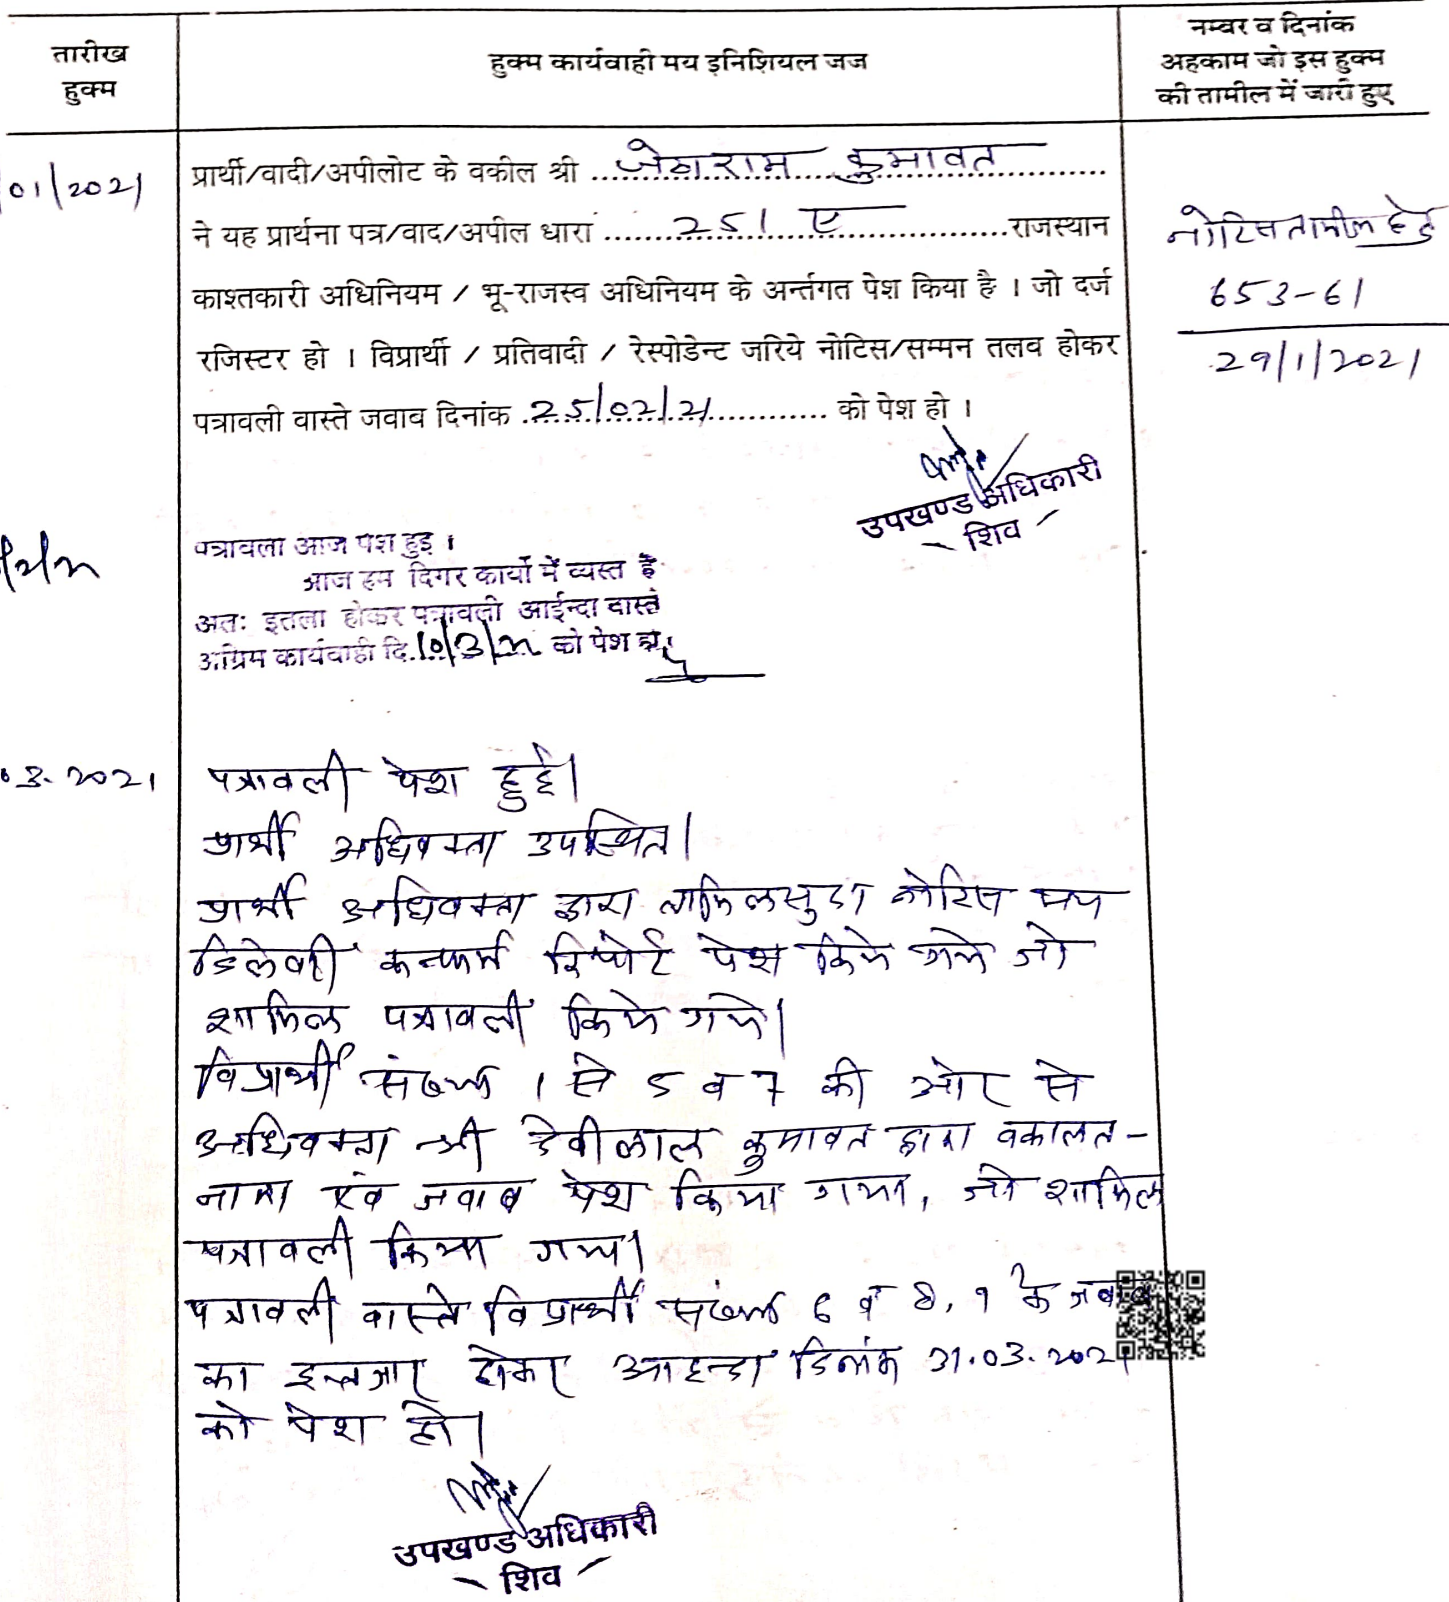 तारीख
हुक्म
हुक्म कार्यवाही मय इनिशियल जज
नम्बर व दिनांक
अहकाम जो इस हुक्म
की तामील में जारी हुए
01/2021
प्रार्थी/वादी/अपीलोट के वकील श्री जेठाराम कुमावत
ने यह प्रार्थना पत्र/वाद/अपील धारा 251 ए राजस्थान
काश्तकारी अधिनियम / भू-राजस्व अधिनियम के अर्न्तगत पेश किया है । जो दर्ज
रजिस्टर हो । विप्रार्थी / प्रतिवादी / रेस्पोडेन्ट जरिये नोटिस/सम्मन तलव होकर
पत्रावली वास्ते जवाब दिनांक 25/02/21 को पेश हो ।
नोटिस तामील हेतु
653-61
29/1/2021
उपखण्ड अधिकारी
शिव
पत्रावली आज पेश हुई ।
आज हम दिगर कार्यो में व्यस्त है
अतः इतला होकर पत्रावली आईन्दा वास्ते
अग्रिम कार्यवाही दि. 10/3/21 को पेश हो
3.2021
पत्रावली पेश हुई।
प्रार्थी अधिवक्ता उपस्थित।
प्रार्थी अधिवक्ता द्वारा तामिलसुदा नोटिस मय
डिलेवरी कन्फर्म रिपोर्ट पेश किये गये जो
शामिल पत्रावली किये गये।
विप्रार्थी संख्या 1 से 5 व 7 की ओर से
अधिवक्ता श्री देवीलाल कुमावत द्वारा वकालत-
नामा एंव जवाब पेश किया गया, जो शामिल
पत्रावली किया गया।
पत्रावली वास्ते विप्रार्थी संख्या 6 व 8, 9 के जवाब
का इन्तजार होकर आइन्दा दिनांक 31.03.2021
को पेश हो।
उपखण्ड अधिकारी
शिव